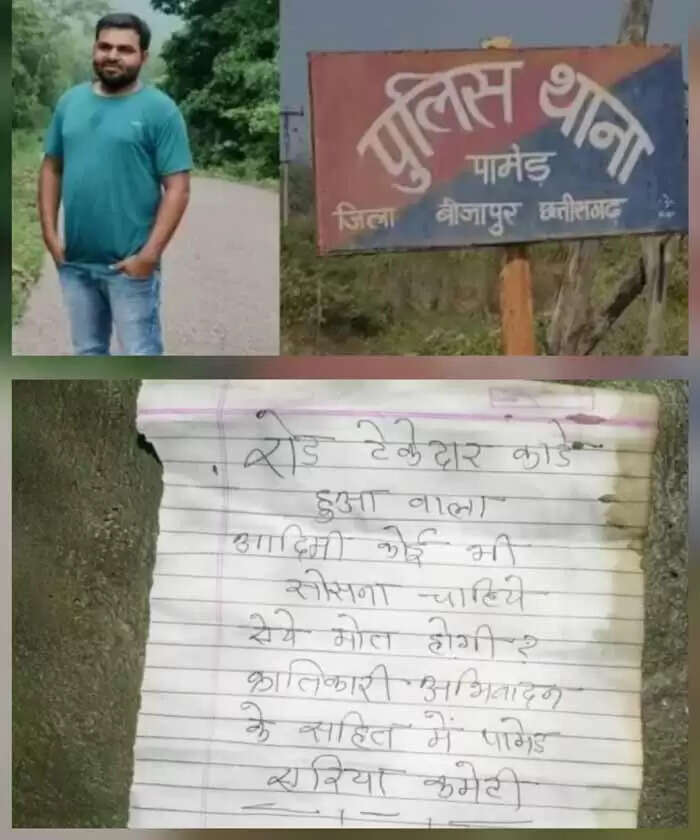 पुलिस थाना
पामेड़
जिला बीजापुर छत्तीसगढ़
रोड टेकेदार काडे
हुआ वाला
आदिमी कोई भी
सोसना चाहिये
सेये मोत होगी?
क्रातिकारी अभिवादन
के सहित में पामेड
एरिया कमेटी